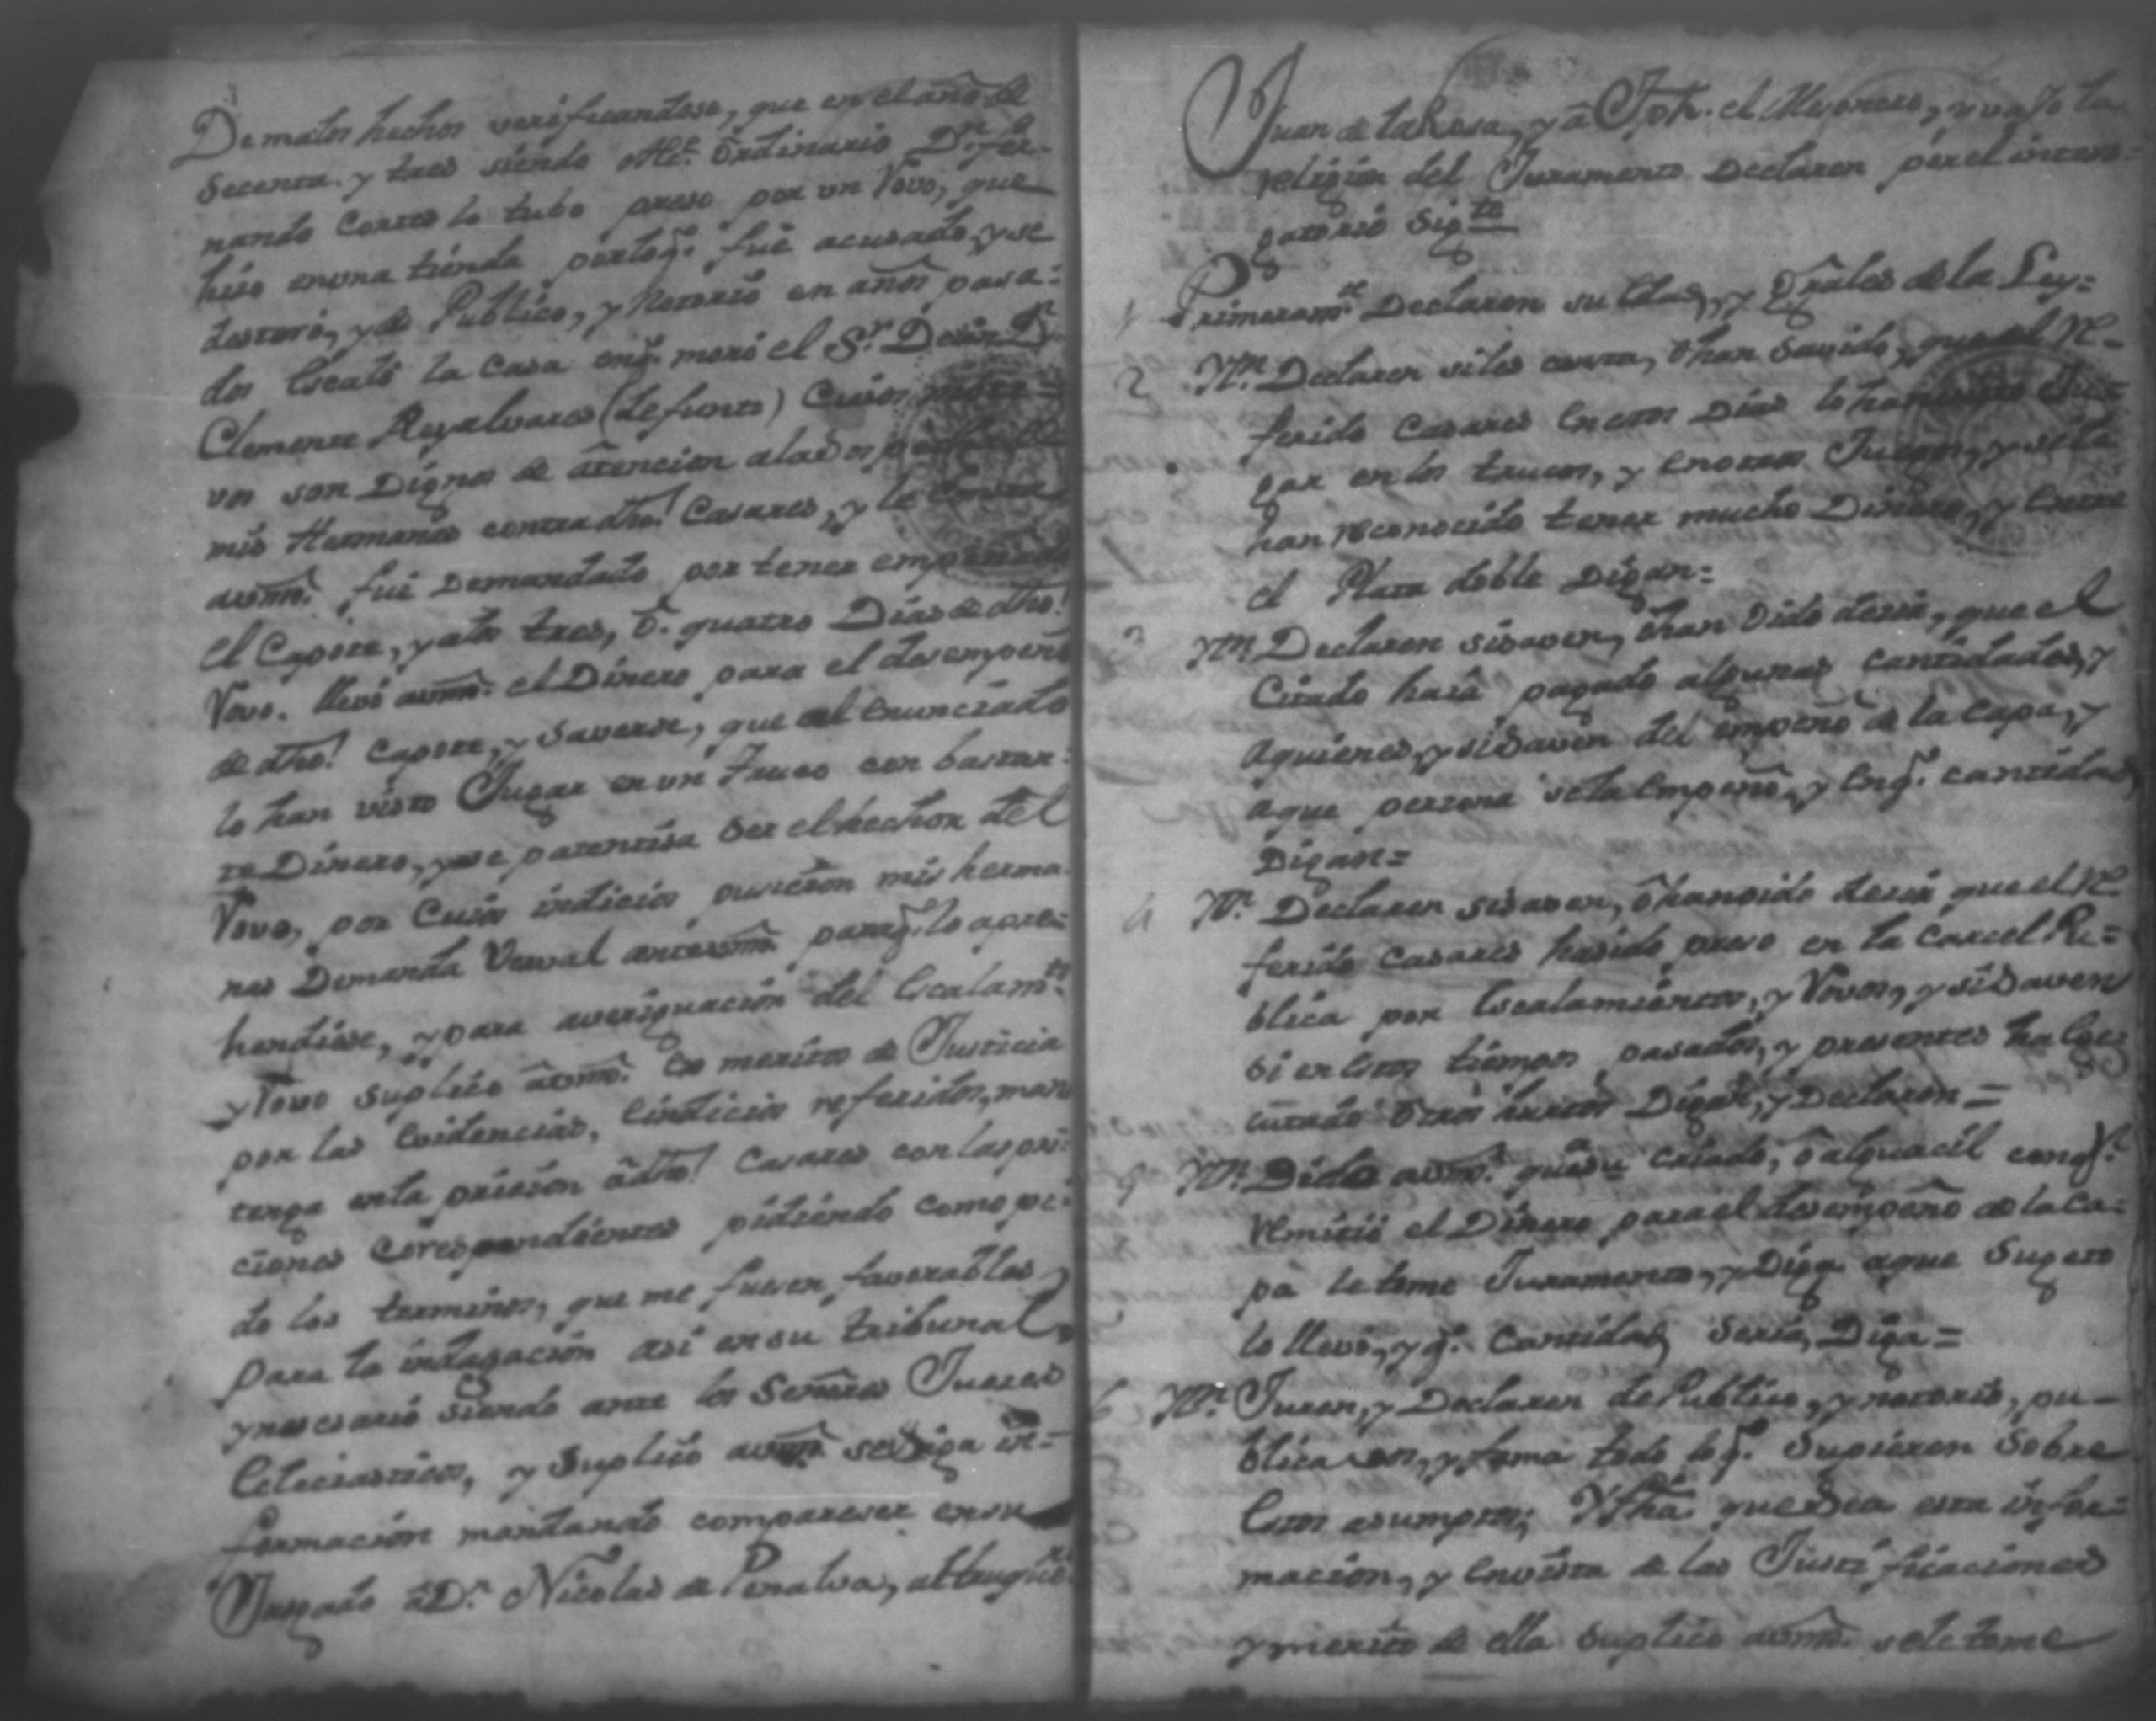 De malos hechos verificandose, que en el año de
Secenta. y tres siendo Alc.e Ordinario D.n Fer-
nando Cortes lo tubo preso por un Vovo, que
hiso en una tienda porloq.e fue acusado, y se
desteró, y de Publico, y Notorio en años pasa-
dos Escaló la Casa enq.e moró el S.r Deán D.n
Clemente Reyalvares (defunto) Cuios
vos son Dignos de atencion alados
mis Hermanas contra dho! Casares, y le
avmd. fue Demandado por tener
el Capote, y alos tres, ó. quatro Dias de dho!
Vovo. llevó avmd. el Dinero para el desempeño
de dho! Capote, y Saverse, que al Enunciado
lo han visto Jugar en un Truco con bastan-
te Dinero, y se patentisa Ser el hechor del
Vovo, por Cuios indicios pusieron mis herma-
nas Demanda Verval antevmd. paraq.e lo apre-
hendiese, y para averiguación del Escalam.to
y Vovo Suplico avmd. en meritos de Justicia
por las Evidencias, Eindicios referidos, man
tenga enla prisión âdho! Casares con las pri-
ciones Corespondientes pidiendo como pi-
do los terminos, que me fueren favorables
para la indagación asi en su tribunal,
y nesesario Siendo ante los Señores Jueses
Ecleciasticos, y Suplico avmd. se Siga in-
formación mandando compareser ensu
Jusgado âD.n Nicolas de Penalva,
Juan de la Rosa, y â Jph. el Mesonero, y vajo la
religion del Juramento Declaren por el interro-
gatorio Sig.te
1 Primeram.te Declaren su Edad, y Grales de la Ley=
2 Ytt.n Declaren siles consta, ôhan Savido, que el Re-
ferido Casares En estos Dias lo han visto Ju-
gar en los trucos, y Enotros Juegos, y sile
han reconocido tener mucho Dinero, y Entre
el Plata doble Digan=
3 Ytt.n Declaren sisaven, ôhan Oido desir, que el
Citado haiâ pagado algunas cantidades, y
aquienes, y siSaven del empeño de la Capa, y
aque persona se la Empeñó, y Enq.e cantidad
Digan=
4 Ytt.n Declaren sisaven, ôhanoido desir que el Re
ferido Casares hasido preso en la Carcel Pu=
blica por Escalamientos, y Vovos, y siSaven
si en Estos tiempos pasados, y presentes ha Eje-
cutado Otros hurtos Digan, y Declaren=
5 Ytt.n Pido avmd. queâsu Criado, ô alguacil conq.n
Remitió el Dinero para el desempeño de la Ca-
pa le tome Juramento, y Diga aque Sugeto
lo llevó, y q.e Cantidad Seria, Diga=
6 Ytt.n Juren, y Declaren de Publico, y notorio, pu-
blica vos, y fama todo loq.e Supieren Sobre
Estos asumptos; Yfha. que Sea esta infor-
mación, y Envista de las Justificaciones
y merito de ella Suplico avmd. sele tome